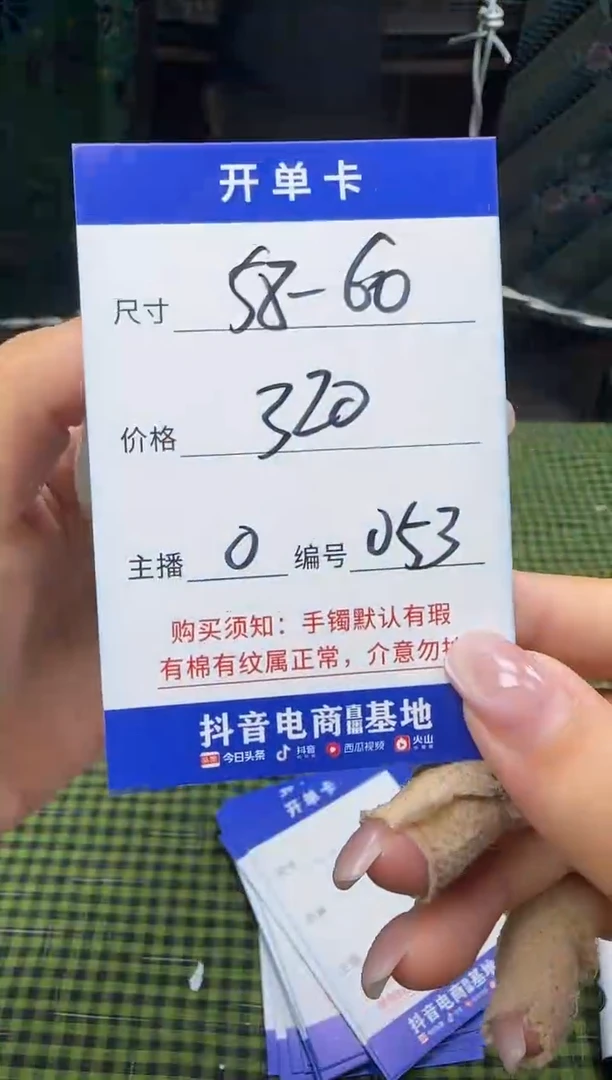 开单卡
尺寸 58-60
价格 320
主播 0 编号 053
购买须知：手镯默认有瑕
有棉有纹属正常，介意勿
抖音电商直播基地
今日头条 抖音 西瓜视频 火山
开单卡
抖音电商直播基地